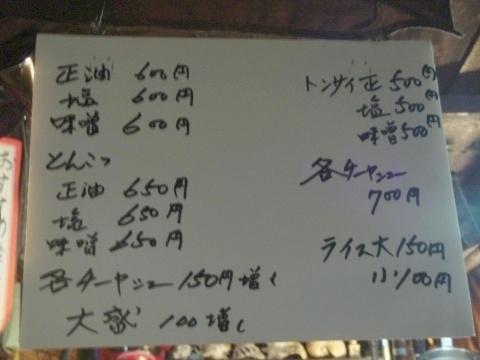 正油 600円
塩 600円
味噌 600円
とんこつ
正油 650円
塩 650円
味噌 650円
各チャーシュー 150円増し
大盛 100増し
トンサイ正 500円
塩 500円
味噌 500円
各チャーシュー
700円
ライス大 150円
小 100円
おすすめ